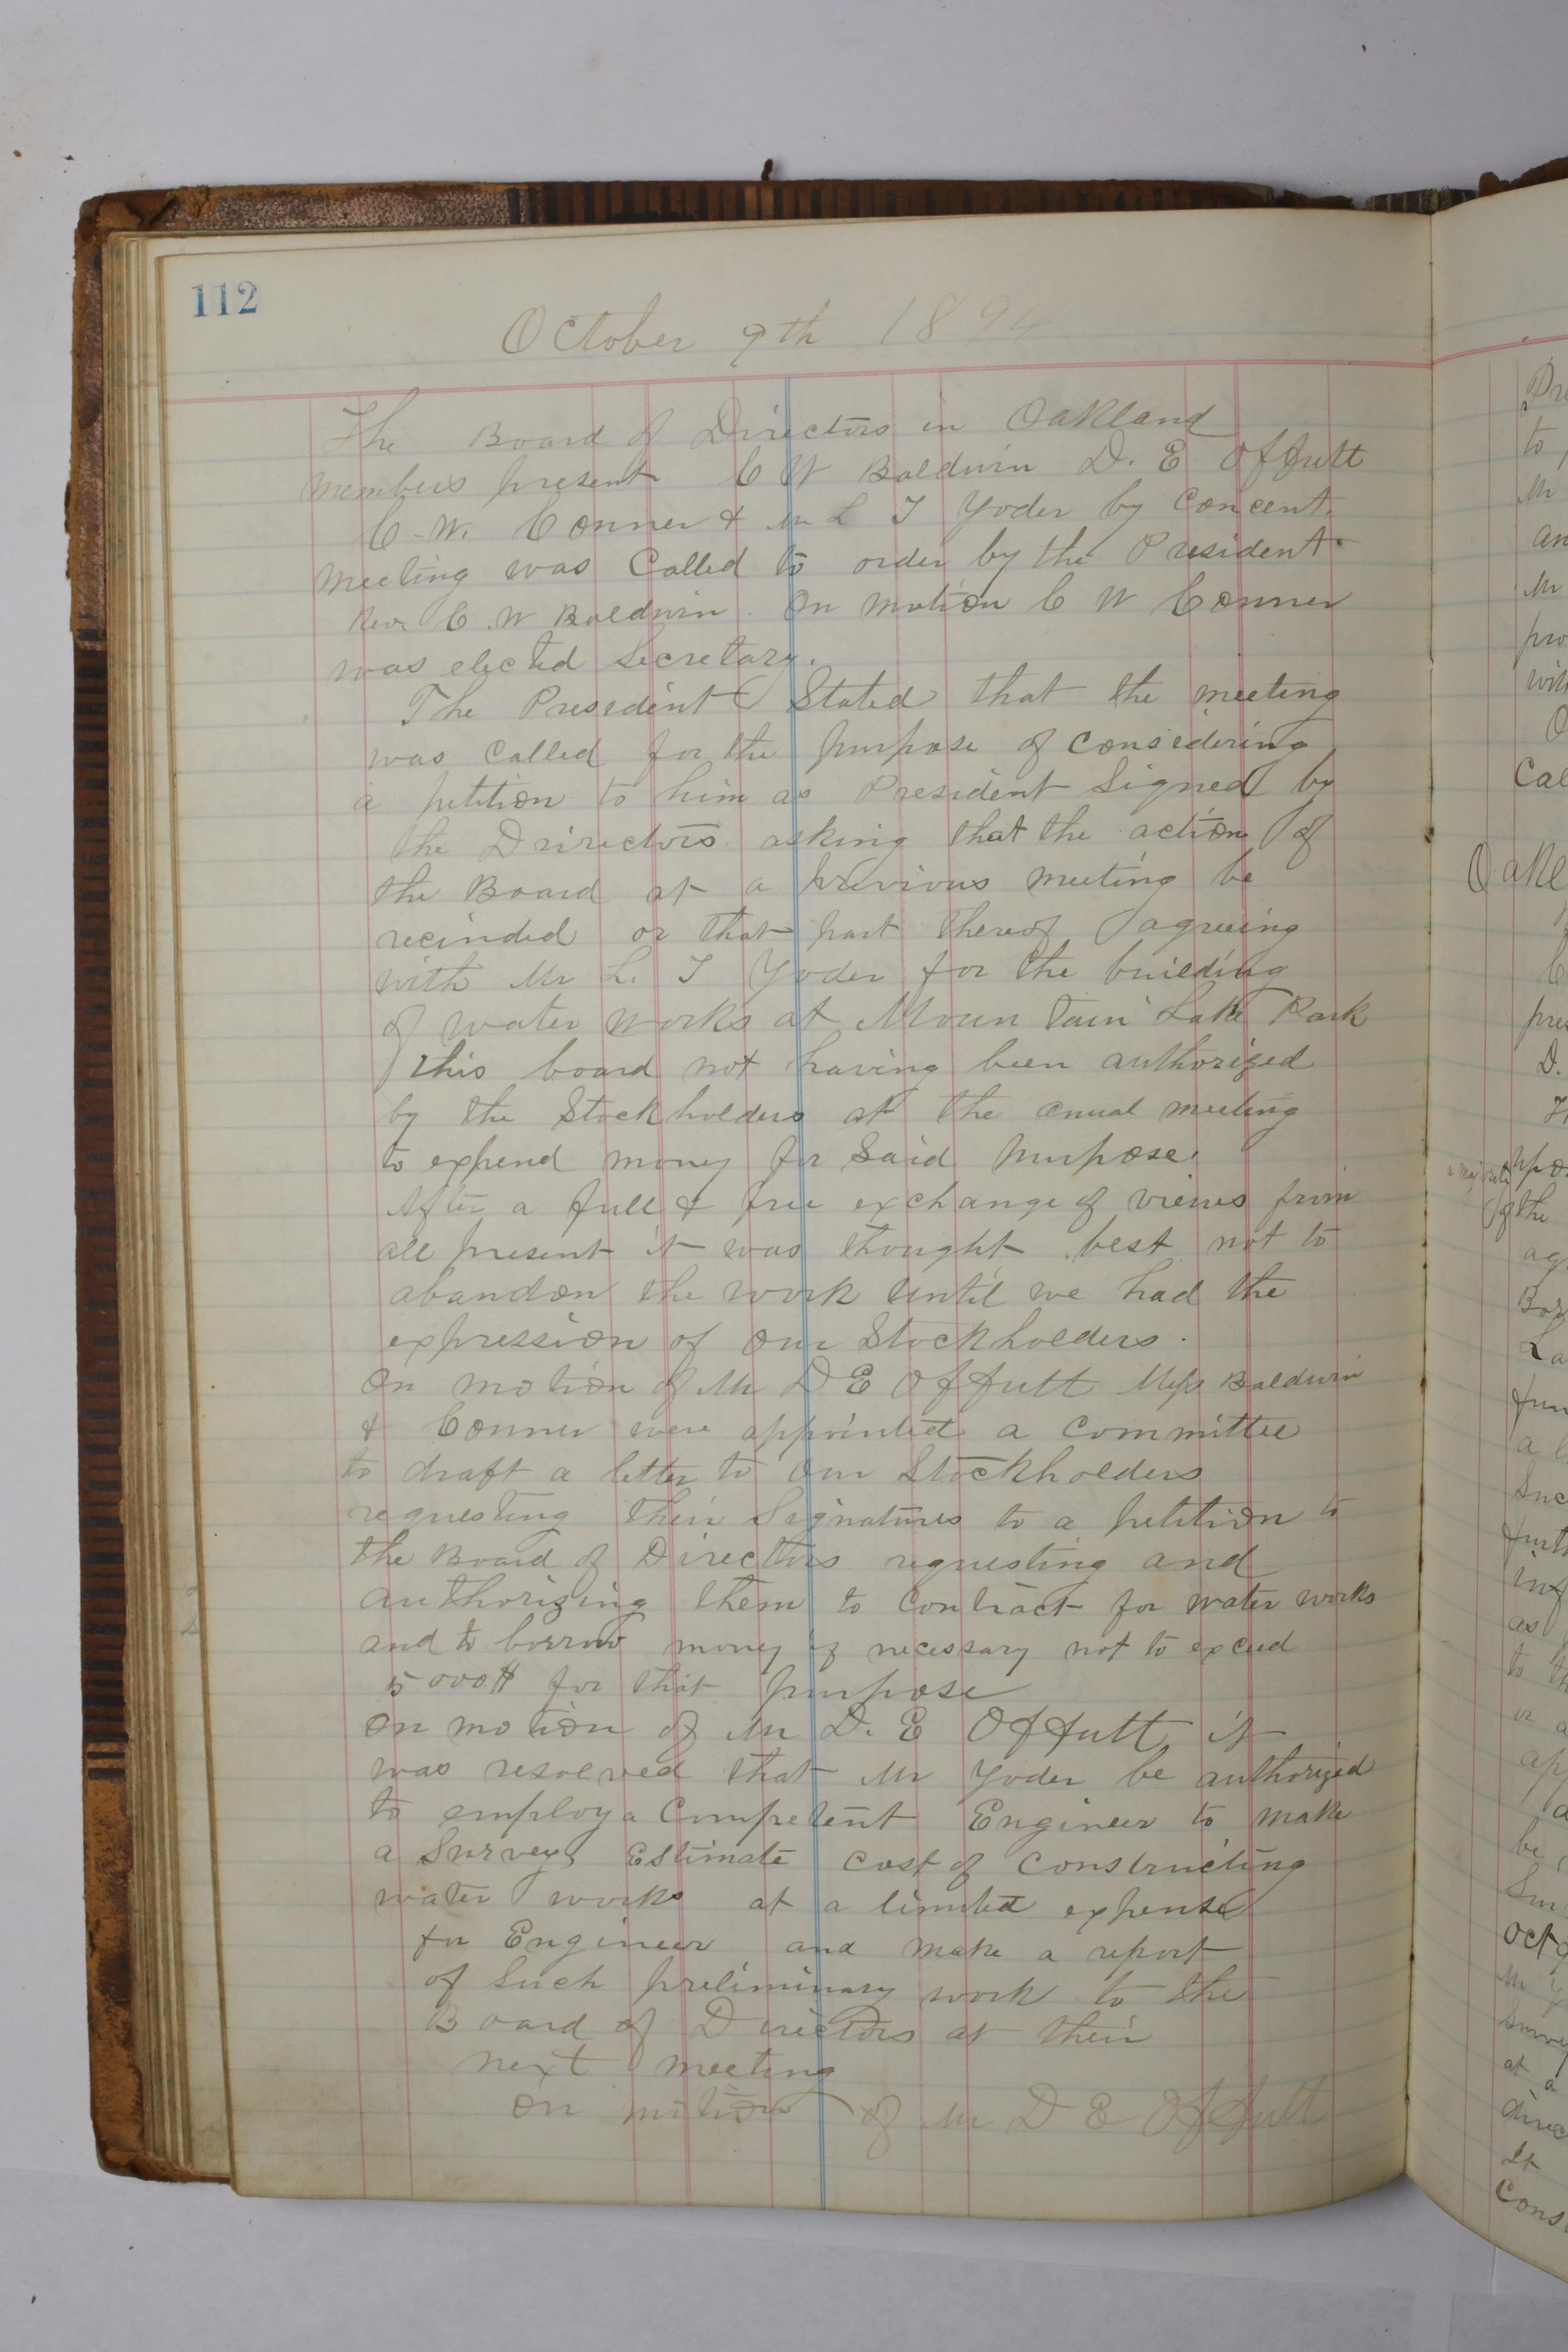 112
October 9th 1894
The Board of Directors in Oakland
members present C W Baldwin D. E Offutt
C. W. Conner & Mr L T Yoder by Concent
meeting was Called to order by the President
Rev. C. W Baldwin. On motion C W Conner
was elected Secretary.
The President Stated that the meeting
was Called for the purpose of considering
a petition to him as President Signed by
the Drirectors asking that the action of
the Board at a previous meeting be
recinded or that part thereof agreeing
with Mr L. T Yoder for the building
of water works at Moun tain Lake Park
this board not having been authorized
by the Stockholders at the anual meeting
to expend money for Said purpose.
After a full & free exchange of views from
all present it was thought best not to
abandon the work until we had the
expression of our Stockholders.
On motion of Mr D E Offutt Mess Baldwin
& Conner were appointed a Committee
to draft a letter to our Stockholders
requesting their Signatures to a petition to
the Board of Directors requesting and
authorizing them to Contract for water works
and to borrow money if necessary not to exceed
5000$ for that purpose
On motion of Mr D. E Offutt it
was resolved that Mr Yoder be authorized
to employ a Competent Engineer to make
a Survey Estimate Cost of Constructing
water works at a limited expense
for Engineer and make a report
of Such preliminary work to the
Board of Directors at their
next meeting
On motion of Mr D E Offutt